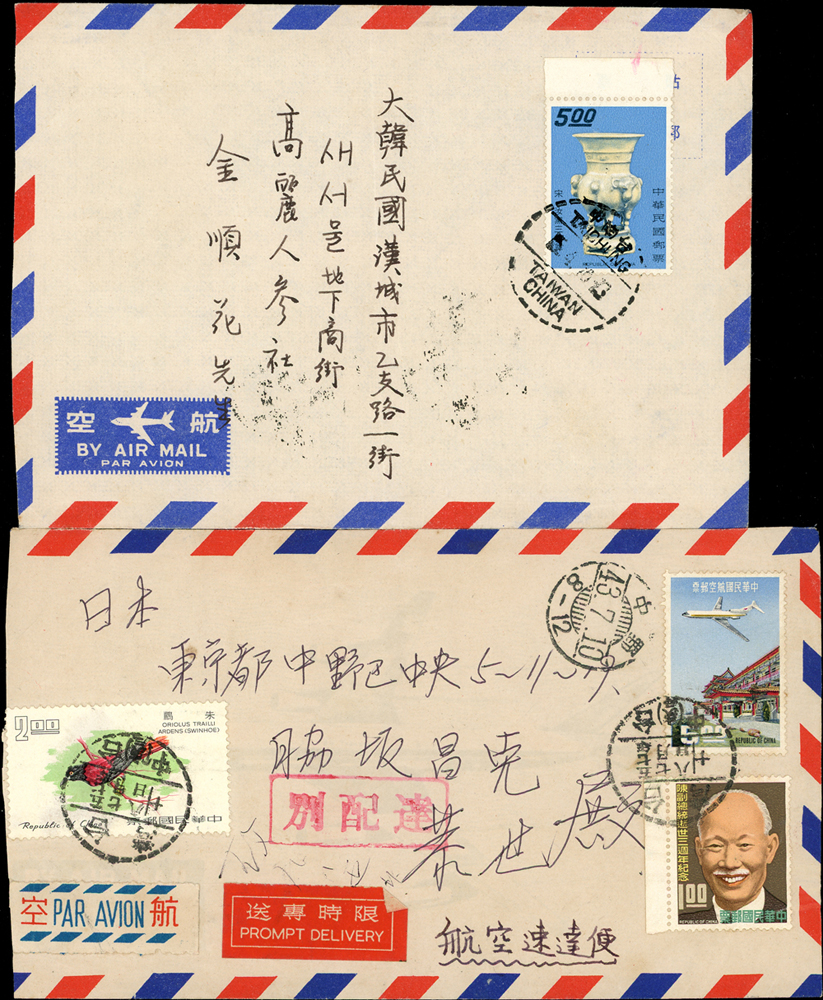 5.00
中華民國郵票
宋
TAICHUNG
TAIWAN
CHINA
大韓民國漢城市乙支路一街
새서울地下商街
高麗人參社
金順花先生
空 航
BY AIR MAIL
PAR AVION
日本
東京都中野区中央5~11~
脇坂昌克
恭世殿
中野
43.7.10
8-12
中華民國航空郵票
REPUBLIC OF CHINA
2.00
朱鸝
ORIOLUS TRAILLI
ARDENS (SWINHOE)
Republic of China
中華民國郵票
別配達
陳副總統逝世三週年紀念
1.00
REPUBLIC OF CHINA
中華民國郵票
空 PAR AVION 航
限時專送
PROMPT DELIVERY
航空速達便